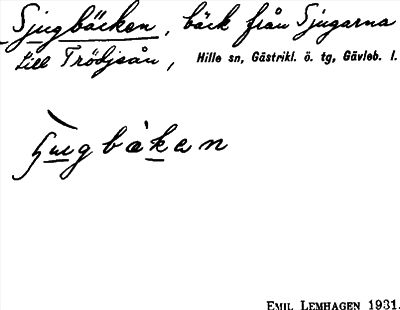 Sjugbäcken, bäck från Sjugarna
till Trödjeån, Hille sn, Gästrikl. ö. tg, Gävleb. l.
EMIL LEMHAGEN 1931.